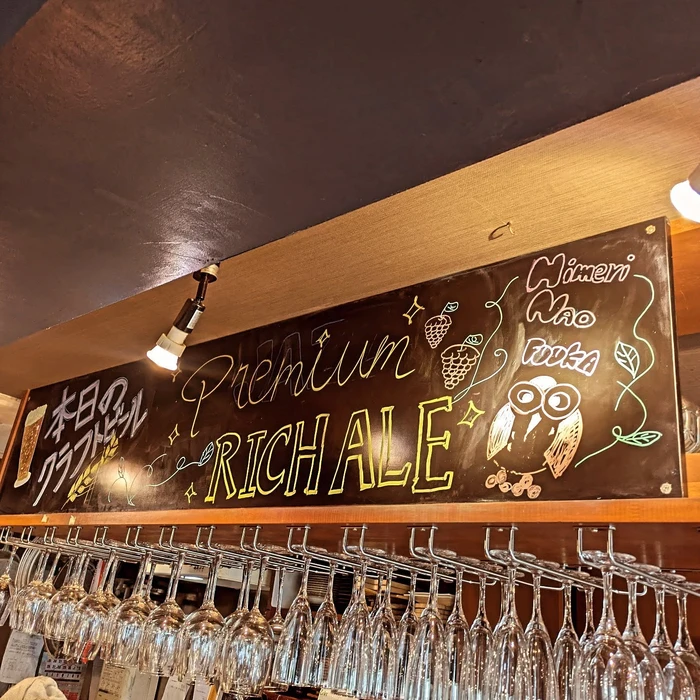 本日の
クラフトビール
Premium
RICH ALE
Himeri
Nao
FUUKA